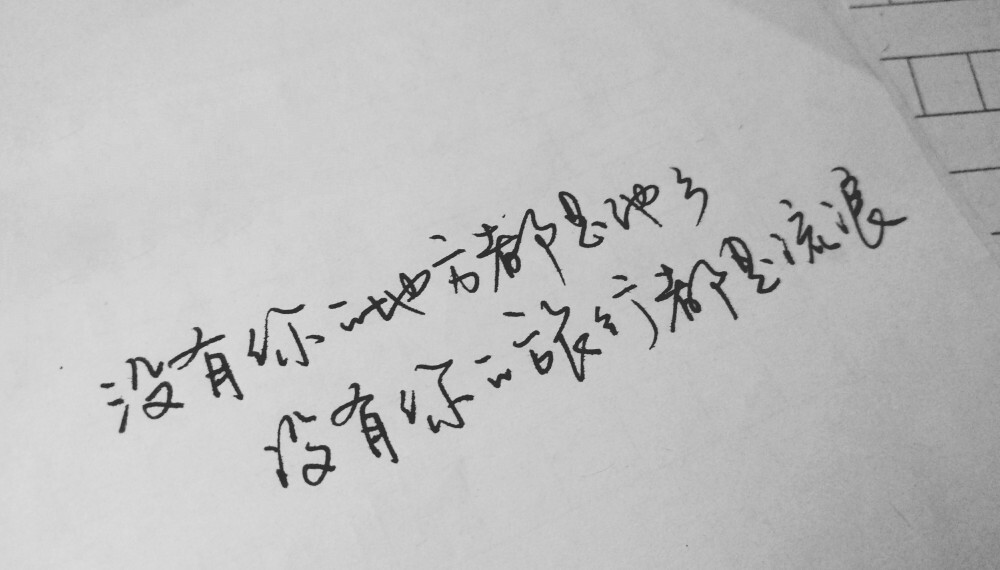 没有你的地方都是他乡
没有你的旅行都是流浪